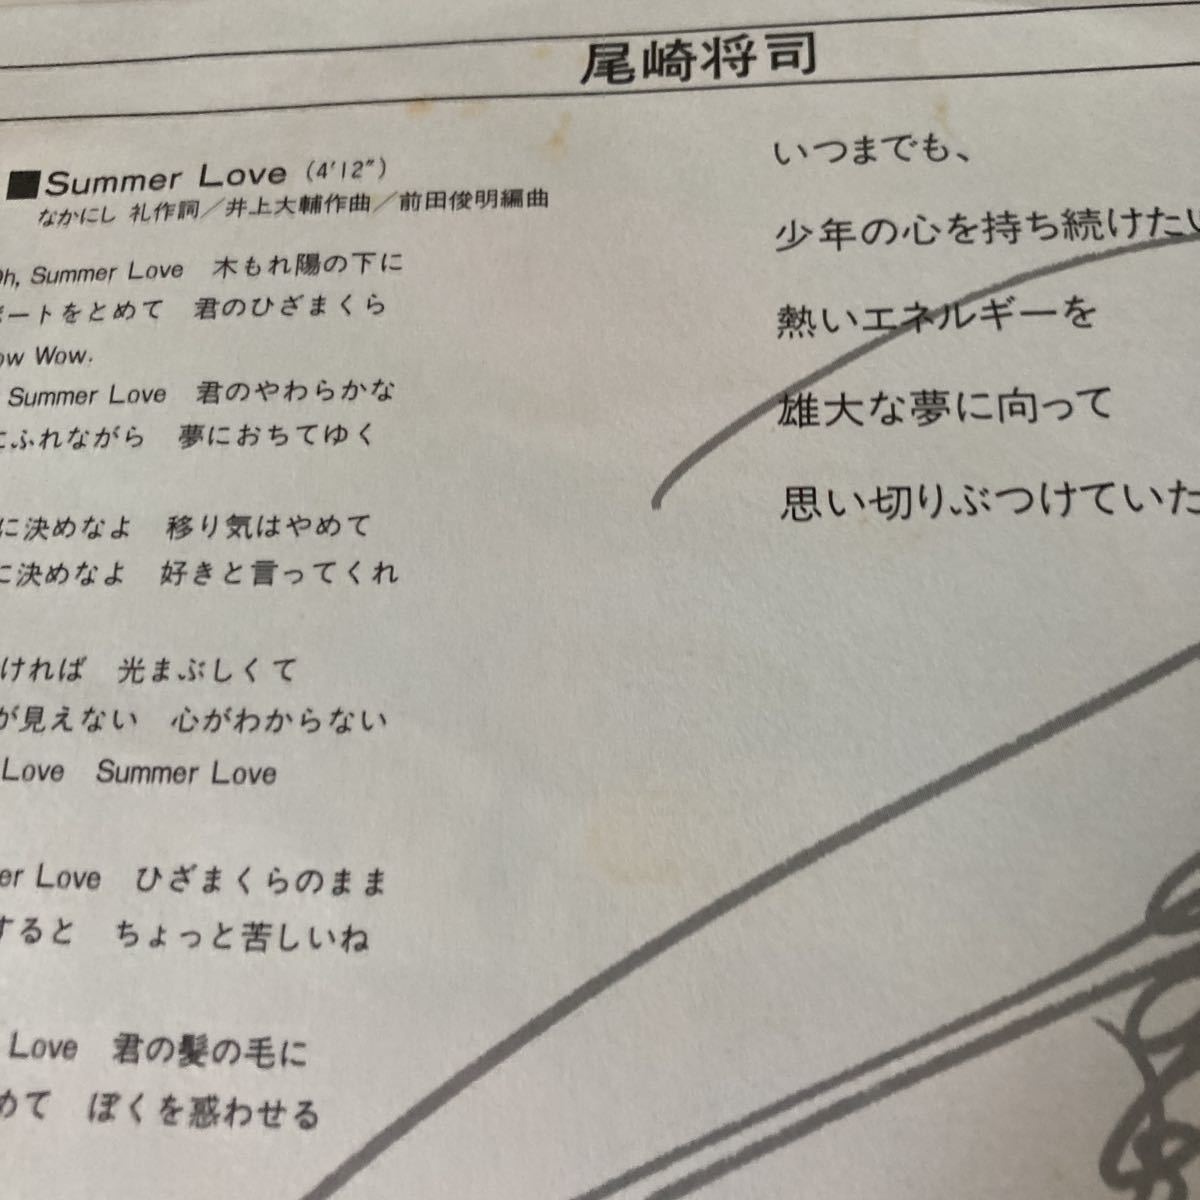 尾崎将司
■Summer Love (4'12")
なかにし 礼作詞／井上大輔作曲／前田俊明編曲
Oh, Summer Love 木もれ陽の下に
ボートをとめて 君のひざまくら
ow Wow.
Summer Love 君のやわらかな
にふれながら 夢におちてゆく
に決めなよ 移り気はやめて
に決めなよ 好きと言ってくれ
ければ 光まぶしくて
が見えない 心がわからない
Love Summer Love
er Love ひざまくらのまま
すると ちょっと苦しいね
Love 君の髪の毛に
めて ぼくを惑わせる
いつまでも、
少年の心を持ち続けたい
熱いエネルギーを
雄大な夢に向って
思い切りぶつけていた